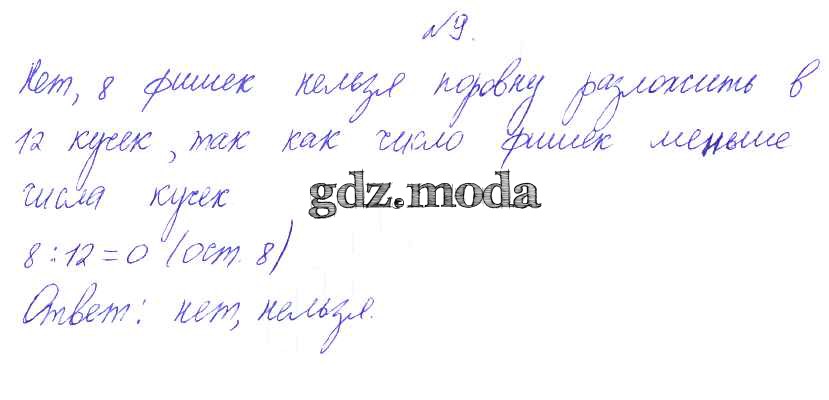 №9.
Нет, 8 фишек нельзя поровну разложить в
12 кучек, так как число фишек меньше
числа кучек
gdz.moda
8:12=0 (ост. 8)
Ответ: нет, нельзя.